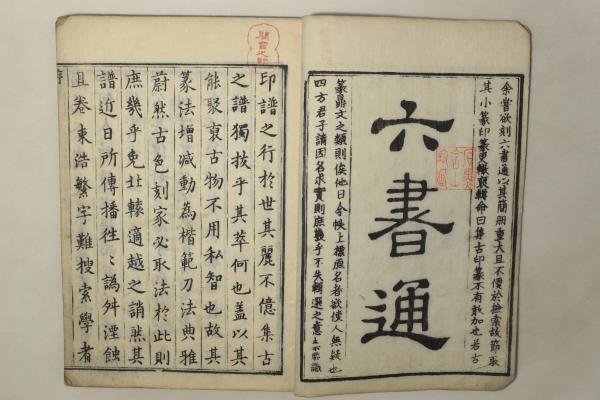 余嘗欲刻六書通以其簡冊重大且不便於撿索故節取
其小篆印篆更裒輯命曰集古印篆不有敢加也若古
六書通
篆鼎文之類則俟他日今帙上標原名者欲使人無疑也
四方君子請因名求實則庶幾乎不失輯選之意云識
印譜之行於世其麗不億集古
之譜獨拔乎其萃何也蓋以其
能聚裒古物不用私智也故其
篆法增減動為楷範刀法典雅
蔚然古色刻家必取法於此則
庶幾乎免北轅適越之誚然其
譜近日所傳播往〻譌舛湮蝕
且卷束浩繁字難搜索學者
序